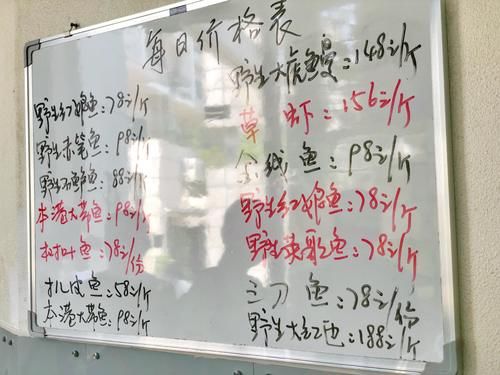 每日价格表
野生红娘鱼:78元/斤
野生赤笔鱼:98元/斤
野生石鲫鱼:88元/斤
本港大带鱼:98元/斤
木叶鱼:78元/份
扒皮鱼:58元/斤
本港大带鱼:98元/斤
野生大虎鳗:148元/斤
草虾:156元/斤
金线鱼:98元/斤
野生红娘鱼:78元/斤
野生英歌鱼:78元/斤
三刀鱼:78元/份
野生大红:188元/斤